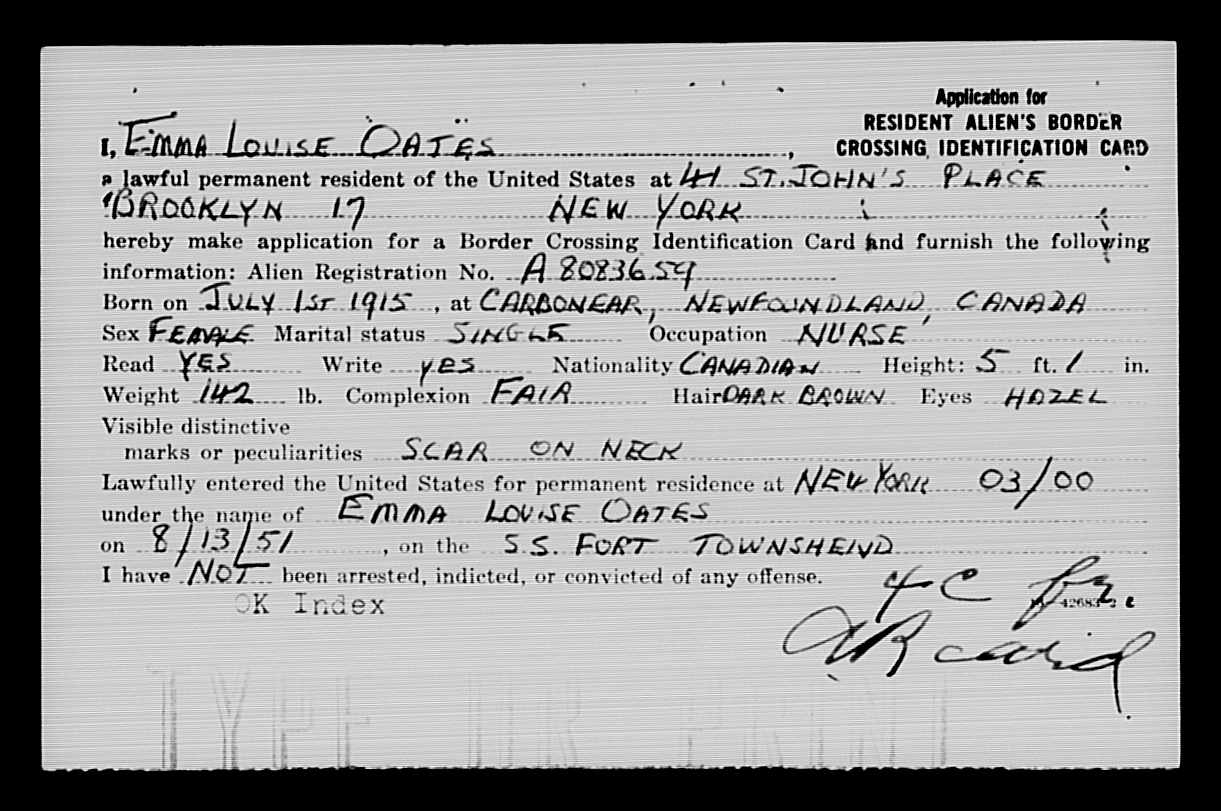 Application for
RESIDENT ALIEN'S BORDER
CROSSING IDENTIFICATION CARD
I, EMMA LOUISE OATES,
a lawful permanent resident of the United States at 41 ST. JOHN'S PLACE
BROOKLYN 17 NEW YORK
hereby make application for a Border Crossing Identification Card and furnish the following
information: Alien Registration No. A 8083659
Born on JULY 1ST 1915, at CARBONEAR, NEWFOUNDLAND, CANADA
Sex FEMALE Marital status SINGLE Occupation NURSE
Read YES Write YES Nationality CANADIAN Height: 5 ft. 1 in.
Weight 142 lb. Complexion FAIR Hair DARK BROWN Eyes HAZEL
Visible distinctive
marks or peculiarities SCAR ON NECK
Lawfully entered the United States for permanent residence at NEW YORK 03/00
under the name of EMMA LOUISE OATES
on 8/13/51, on the S.S. FORT TOWNSHEND
I have NOT been arrested, indicted, or convicted of any offense.
OK Index
4-C
AR card
TYPE OR PRINT